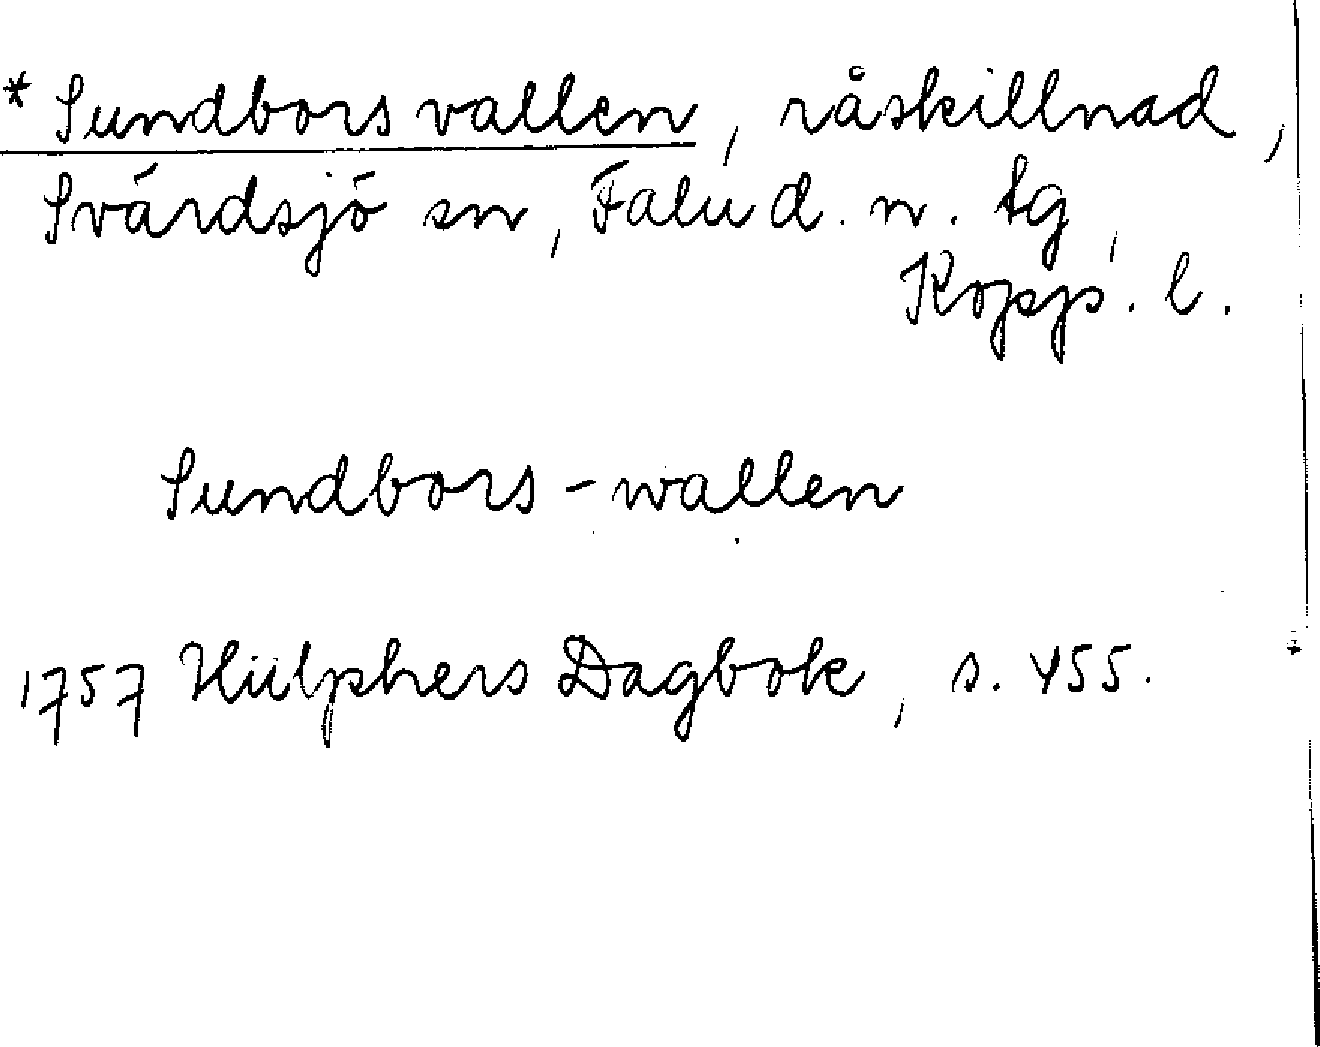 * Sundborsvallen, råskillnad,
Svärdsjö sn, Falu d. n. tg,
Kopp. l.
Sundbors-wallen
1757 Hülphers Dagbok, s. 455.